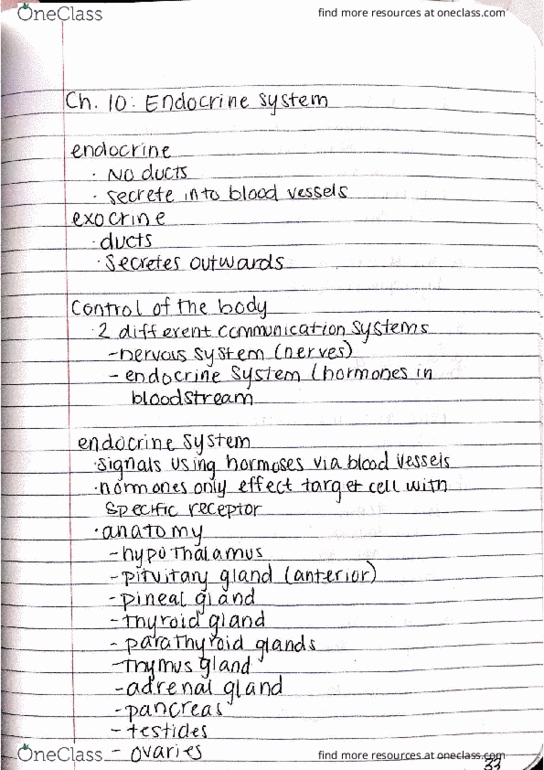 OneClass find more resources at oneclass.com
Ch. 10: Endocrine system
endocrine
· No ducts
· secrete into blood vessels
exocrine
· ducts
· Secretes outwards
Control of the body
· 2 different communication systems
- nervous system (nerves)
- endocrine system (hormones in
bloodstream
endocrine system
· signals using hormoses via blood vessels
· hormones only effect target cell with
specific receptor
· anatomy
- hypothalamus
- pituitary gland (anterior)
- pineal gland
- thyroid gland
- parathyroid glands
- Thymus gland
- adrenal gland
- pancreas
- testides
- ovaries
OneClass find more resources at oneclass.com